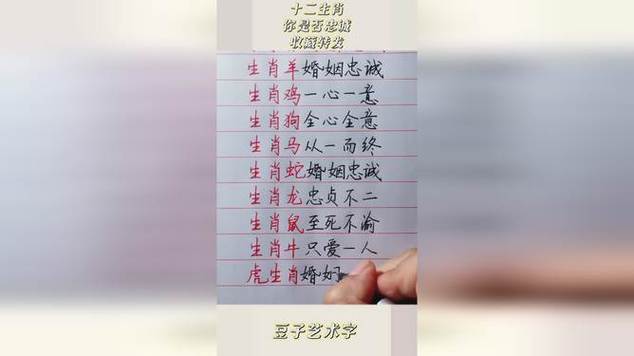 十二生肖
你是否忠诚
收藏转发
生肖羊婚姻忠诚
生肖鸡一心一意
生肖狗全心全意
生肖马从一而终
生肖蛇婚姻忠诚
生肖龙忠贞不二
生肖鼠至死不渝
生肖牛只爱一人
虎生肖婚
豆子艺术字